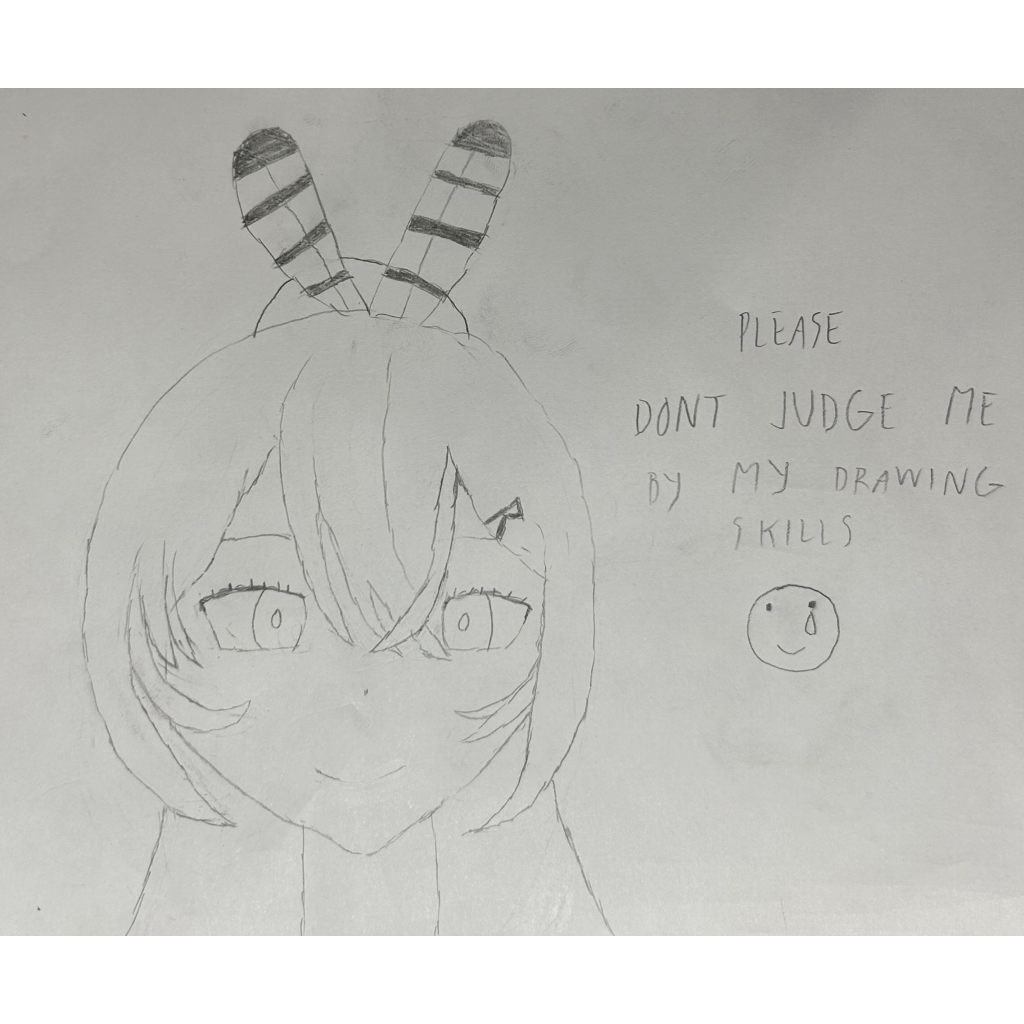 PLEASE
DONT JUDGE ME
BY MY DRAWING
SKILLS